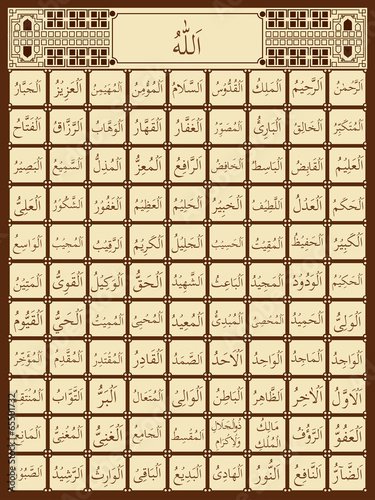 اَللّٰهُ
اَلرَّحْمٰنُ اَلرَّحِيْمُ اَلْمَلِكُ اَلْقُدُّوْسُ اَلسَّلَامُ اَلْمُؤْمِنُ اَلْمُهَيْمِنُ اَلْعَزِيْزُ اَلْجَبَّارُ
اَلْمُتَكَبِّرُ اَلْخَالِقُ اَلْبَارِئُ اَلْمُصَوِّرُ اَلْغَفَّارُ اَلْقَهَّارُ اَلْوَهَّابُ اَلرَّزَّاقُ اَلْفَتَّاحُ
اَلْعَلِيْمُ اَلْقَابِضُ اَلْبَاسِطُ اَلْخَافِضُ اَلرَّافِعُ اَلْمُعِزُّ اَلْمُذِلُّ اَلسَّمِيْعُ اَلْبَصِيْرُ
اَلْحَكَمُ اَلْعَدْلُ اَللَّطِيْفُ اَلْخَبِيْرُ اَلْحَلِيْمُ اَلْعَظِيْمُ اَلْغَفُوْرُ اَلشَّكُوْرُ اَلْعَلِيُّ
اَلْكَبِيْرُ اَلْحَفِيْظُ اَلْمُقِيْتُ اَلْحَسِيْبُ اَلْجَلِيْلُ اَلْكَرِيْمُ اَلرَّقِيْبُ اَلْمُجِيْبُ اَلْوَاسِعُ
اَلْحَكِيْمُ اَلْوَدُوْدُ اَلْمَجِيْدُ اَلْبَاعِثُ اَلشَّهِيْدُ اَلْحَقُّ اَلْوَكِيْلُ اَلْقَوِيُّ اَلْمَتِيْنُ
اَلْوَلِيُّ اَلْحَمِيْدُ اَلْمُحْصِيُ اَلْمُبْدِئُ اَلْمُعِيْدُ اَلْمُحْيِي اَلْمُمِيْتُ اَلْحَيُّ اَلْقَيُّوْمُ
اَلْوَاجِدُ اَلْمَاجِدُ اَلْوَاحِدُ اَلْاَحَدُ اَلصَّمَدُ اَلْقَادِرُ اَلْمُقْتَدِرُ اَلْمُقَدِّمُ اَلْمُؤَخِّرُ
اَلْاَوَّلُ اَلْاٰخِرُ اَلظَّاهِرُ اَلْبَاطِنُ اَلْوَالِي اَلْمُتَعَالُ اَلْبَرُّ اَلتَّوَّابُ اَلْمُنْتَقِمُ
اَلْعَفُوُّ اَلرَّؤُفُ مَالِكُ الْمُلْكِ ذُوالْجَلَالِ وَالْاِكْرَامِ اَلْمُقْسِطُ اَلْجَامِعُ اَلْغَنِيُّ اَلْمُغْنِيُ اَلْمَانِعُ
اَلضَّآرُّ اَلنَّافِعُ اَلنُّوْرُ اَلْهَادِيُ اَلْبَدِيْعُ اَلْبَاقِي اَلْوَارِثُ اَلرَّشِيْدُ اَلصَّبُوْرُ